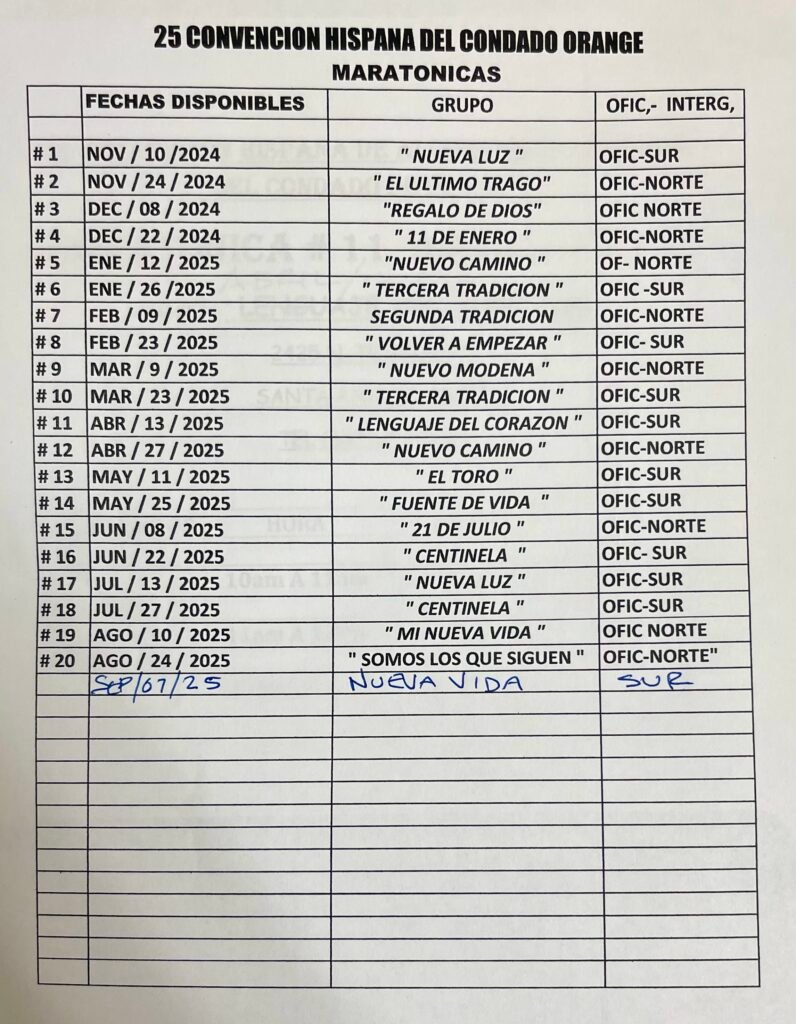 25 CONVENCION HISPANA DEL CONDADO ORANGE
MARATONICAS
FECHAS DISPONIBLES GRUPO OFIC,- INTERG,
# 1 NOV / 10 /2024 " NUEVA LUZ " OFIC-SUR
# 2 NOV / 24 / 2024 " EL ULTIMO TRAGO" OFIC-NORTE
# 3 DEC / 08 / 2024 "REGALO DE DIOS" OFIC NORTE
# 4 DEC / 22 / 2024 " 11 DE ENERO " OFIC-NORTE
# 5 ENE / 12 / 2025 "NUEVO CAMINO " OF- NORTE
# 6 ENE / 26 /2025 " TERCERA TRADICION " OFIC -SUR
# 7 FEB / 09 / 2025 SEGUNDA TRADICION OFIC-NORTE
# 8 FEB / 23 / 2025 " VOLVER A EMPEZAR " OFIC- SUR
# 9 MAR / 9 / 2025 " NUEVO MODENA " OFIC-NORTE
# 10 MAR / 23 / 2025 " TERCERA TRADICION " OFIC-SUR
# 11 ABR / 13 / 2025 " LENGUAJE DEL CORAZON " OFIC-SUR
# 12 ABR / 27 / 2025 " NUEVO CAMINO " OFIC-NORTE
# 13 MAY / 11 / 2025 " EL TORO " OFIC-SUR
# 14 MAY / 25 / 2025 " FUENTE DE VIDA " OFIC-SUR
# 15 JUN / 08 / 2025 " 21 DE JULIO " OFIC-NORTE
# 16 JUN / 22 / 2025 " CENTINELA " OFIC- SUR
# 17 JUL / 13 / 2025 " NUEVA LUZ " OFIC-SUR
# 18 JUL / 27 / 2025 " CENTINELA " OFIC-SUR
# 19 AGO / 10 / 2025 " MI NUEVA VIDA " OFIC NORTE
# 20 AGO / 24 / 2025 " SOMOS LOS QUE SIGUEN " OFIC-NORTE"
SEP/07/25 NUEVA VIDA SUR